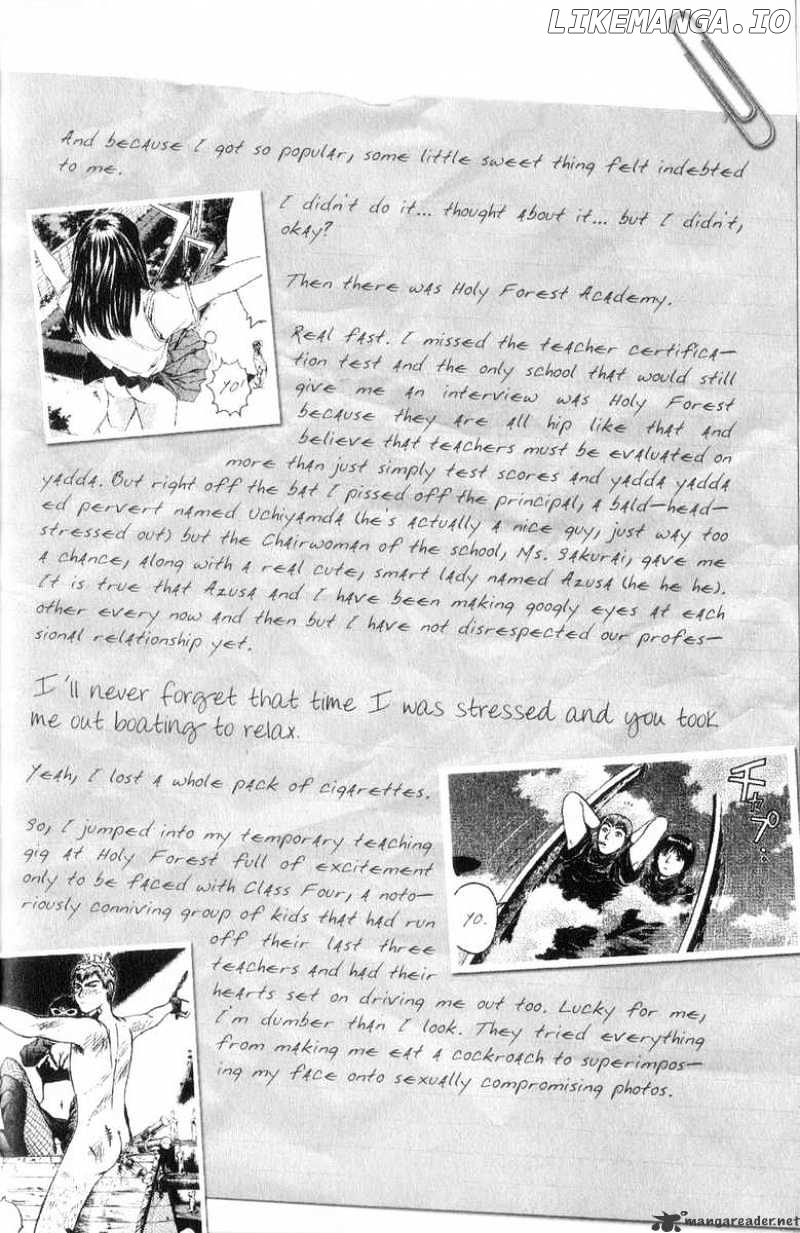 LIKEMANGA.IO
And because I got so popular, some little sweet thing felt indebted
to me.
I didn't do it... thought about it... but I didn't,
okay?
Then there was Holy Forest Academy.
Real fast. I missed the teacher certifica—
tion test and the only school that would still
give me an interview was Holy Forest
because they are all hip like that and
believe that teachers must be evaluated on
more than just simply test scores and yadda yadda
yadda. But right off the bat I pissed off the principal, a bald—head—
ed pervert named Uchiyamda (he's actually a nice guy, just way too
stressed out) but the Chairwoman of the school, Ms. Sakurai, gave me
a chance, along with a real cute, smart lady named Azusa (he he he).
It is true that Azusa and I have been making googly eyes at each
other every now and then but I have not disrespected our profes—
sional relationship yet.
YO!
I'll never forget that time I was stressed and you took
me out boating to relax.
Yeah, I lost a whole pack of cigarettes.
So, I jumped into my temporary teaching
gig at Holy Forest full of excitement
only to be faced with Class Four, a noto—
riously conniving group of kids that had run
off their last three
teachers and had their
hearts set on driving me out too. Lucky for me,
I'm dumber than I look. They tried everything
from making me eat a cockroach to superimpos—
ing my face onto sexually compromising photos.
チャプ…
YO.
mangareader.net